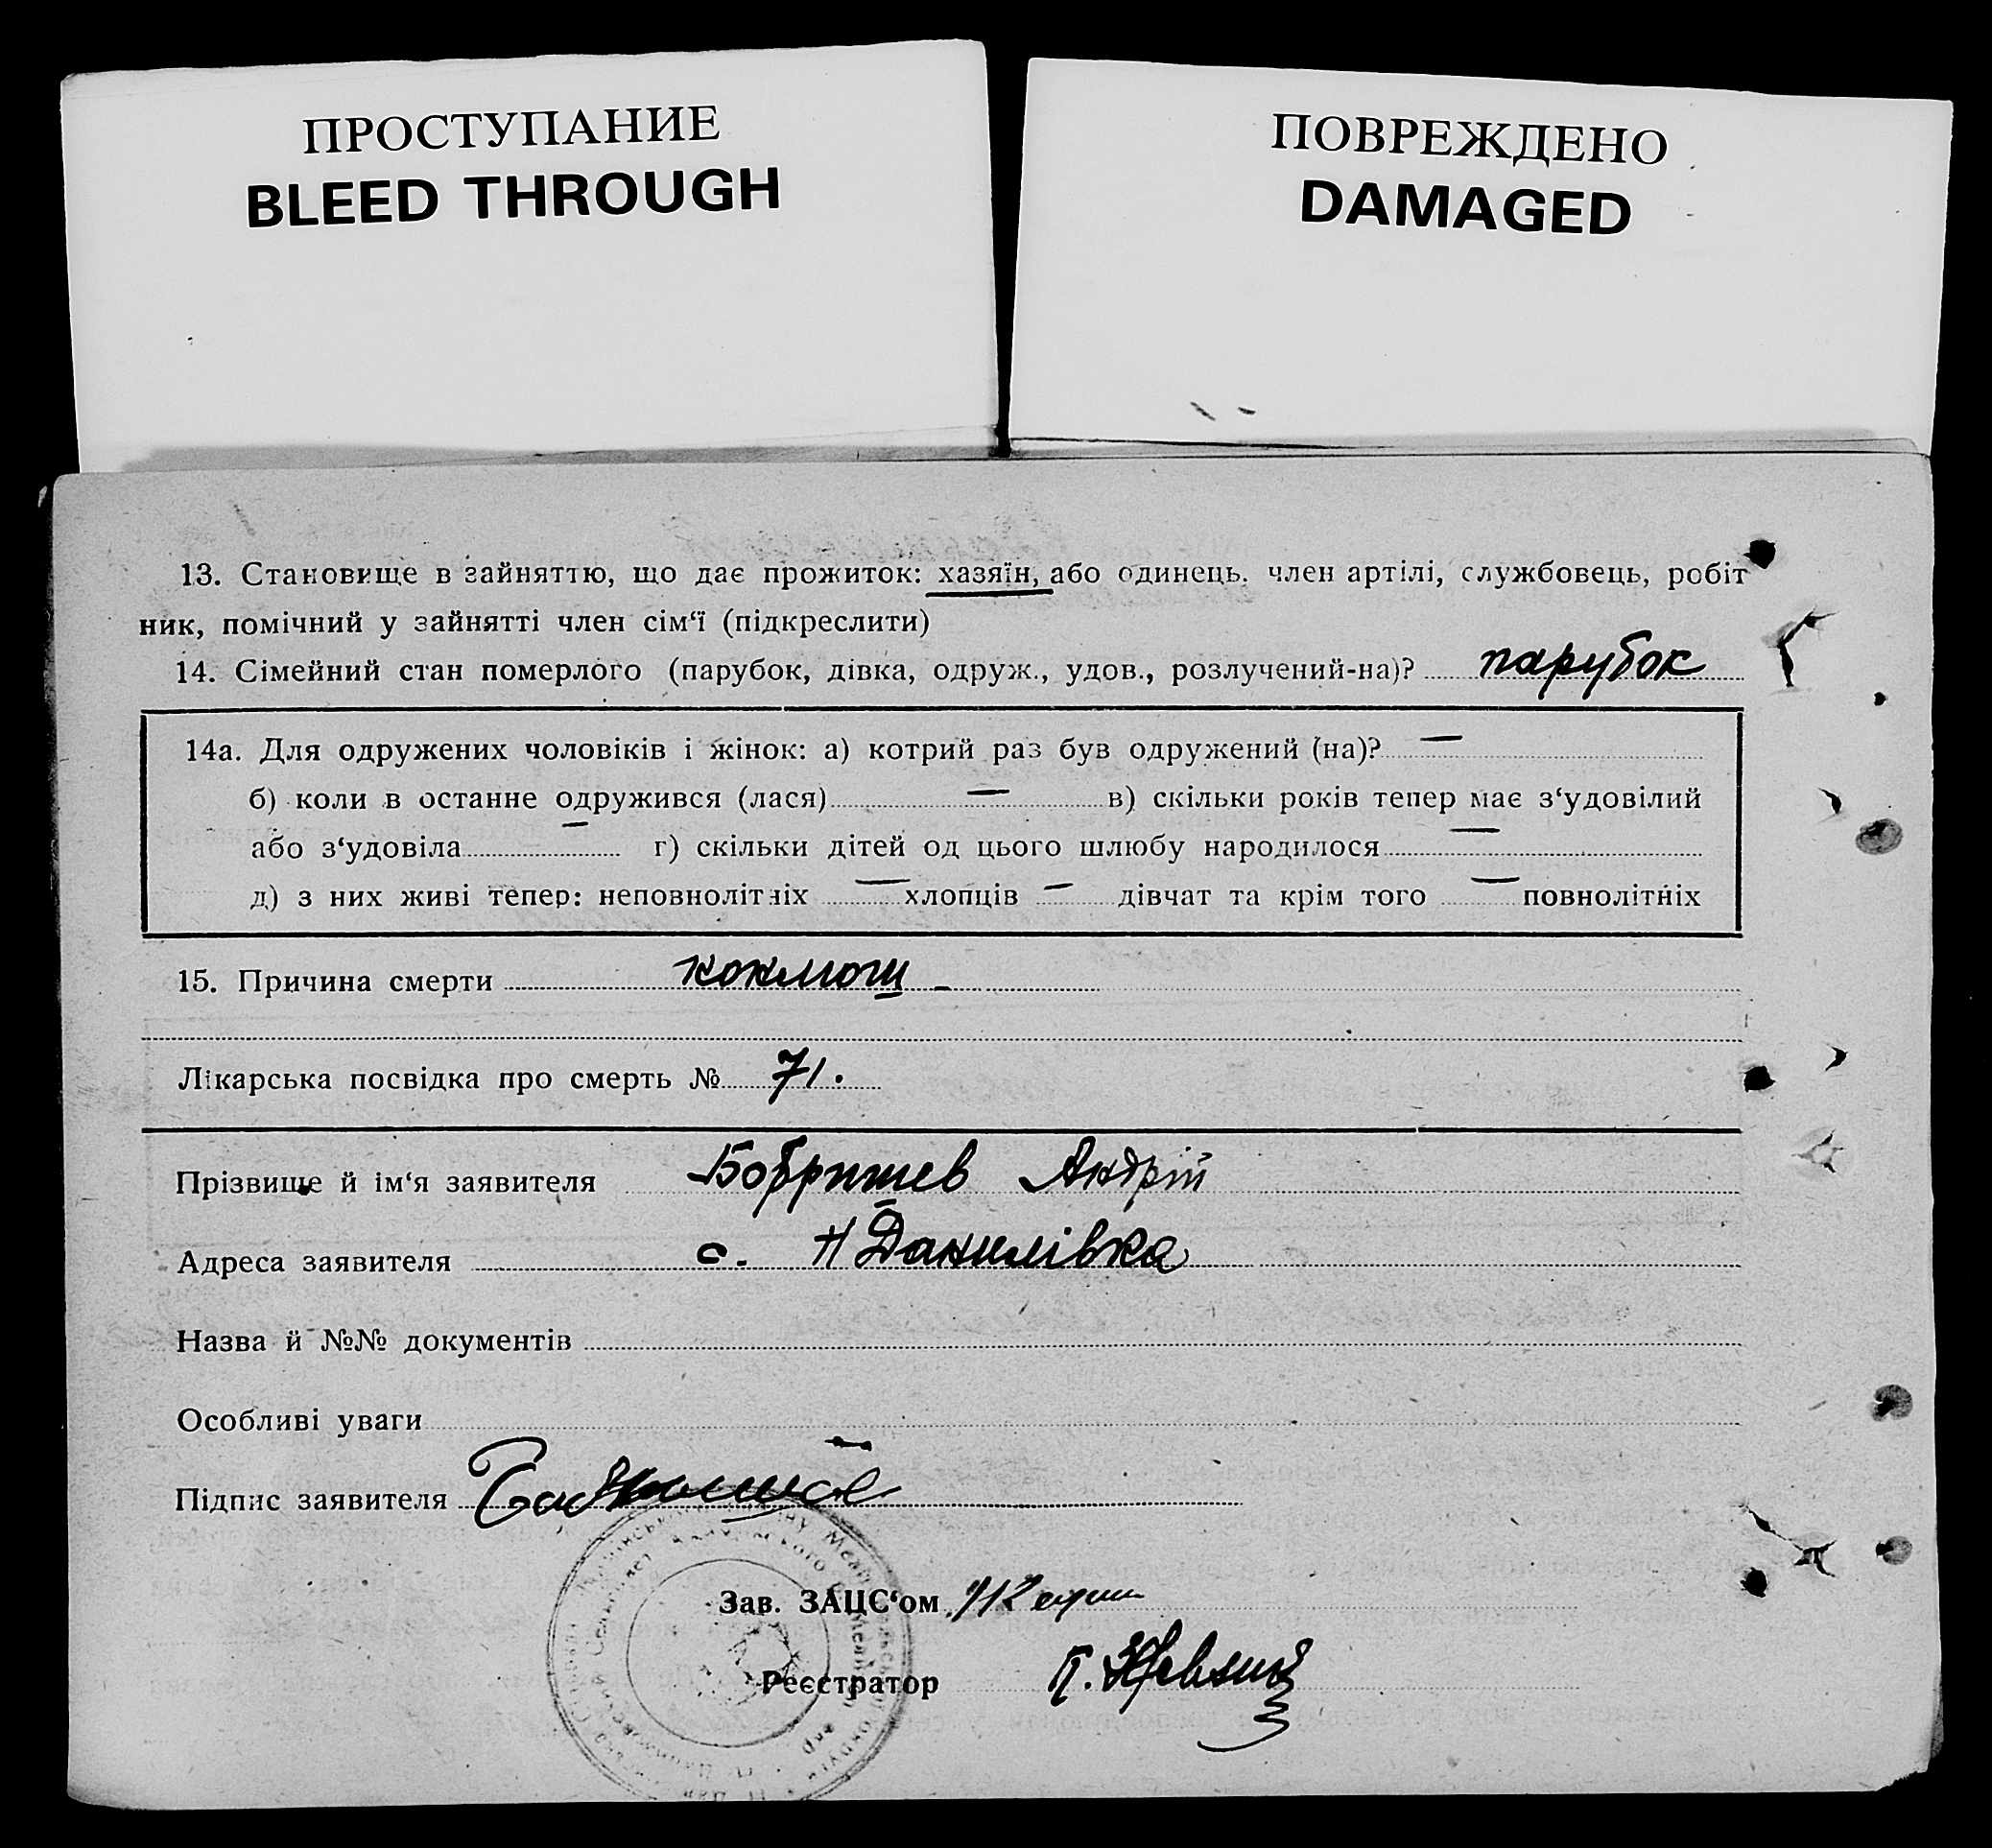 ПРОСТУПАНИЕ
BLEED THROUGH
ПОВРЕЖДЕНО
DAMAGED
13. Становище в зайняттю, що дає прожиток: хазяїн, або одинець. член артілі, службовець, робіт
ник, помічний у зайнятті член сім‘ї (підкреслити)
14. Сімейний стан померлого (парубок, дівка, одруж., удов., розлучений-на)? парубок
14а. Для одружених чоловіків і жінок: а) котрий раз був одружений (на)? —
б) коли в останне одружився (лася) — в) скільки років тепер має з‘удовілий
або з‘удовіла — г) скільки дітей од цього шлюбу народилося —
д) з них живі тепер: неповнолітніх — хлопців — дівчат та крім того — повнолітніх
15. Причина смерти коклюш
Лікарська посвідка про смерть № 71.
Прізвище й ім‘я заявителя Бобришев Андрій
Адреса заявителя с. Н Данилівка
Назва й №№ документів
Особливі уваги
Підпис заявителя
Зав. ЗАЦС‘ом
Реєстратор